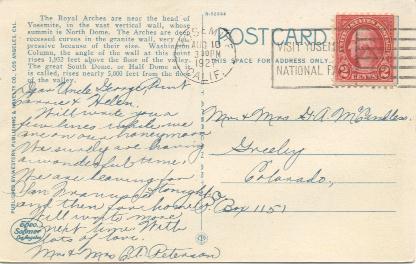 The Royal Arches are near the head of
Yosemite, in the vast vertical wall, whose
summit is North Dome. The Arches are deep
recessed curves in the granite wall, very im-
pressive because of their size. Washington
Column, the angle of the wall at this point,
rises 1,952 feet above the floor of the valley.
The great South Dome, or Half Dome as it
is called, rises nearly 5,000 feet from the floor
of the valley.
Dear Uncle George Aunt
Carrie & Helen.
Will write you a
few lines while we
are on our honeymoon
We surely are having
a wonderful time.
We are leaving for
San Francisco tonight
and then for home
Will write more
next time. With
lots of love.
Mr and Mrs Peterson
POST CARD
THIS SPACE FOR ADDRESS
AUG 10
CALIF.
VISIT YOSEMITE
NATIONAL PARK
2 CENTS 2
Mr & Mrs G. A. McCandless
Greeley
Colorado,
Box 1151